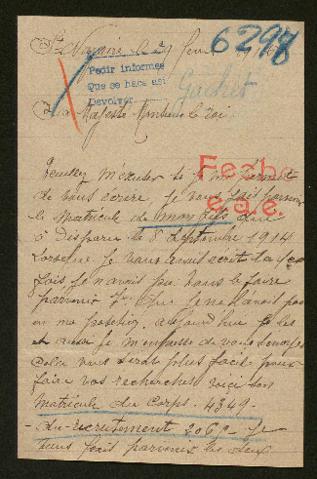 St Nazaire le 29
6298
Pedir informes
Que se haga así
Devolver
Gachet
Sa Majesté Monsieur le roi
Fecho
e.a.e.
Veuillez m'excuser si je me permet
de vous écrire je vous fait parvenir
le Matricule de mon fils qui
à disparu le 8 Septembre 1914
Lorsque je vous avait écrit la 1
fois je n'avait pu vous le faire
parvenir que je ne l'avait pas
en ma possession aujourd'hui je les
et aussi je m'empresse de vous l'envoyer
cela vous serat plus facile pour
faire vos recherches voici son
Matricule du Corps. 4349.
du recrutement 2062 je
vous fait parvenir les deux